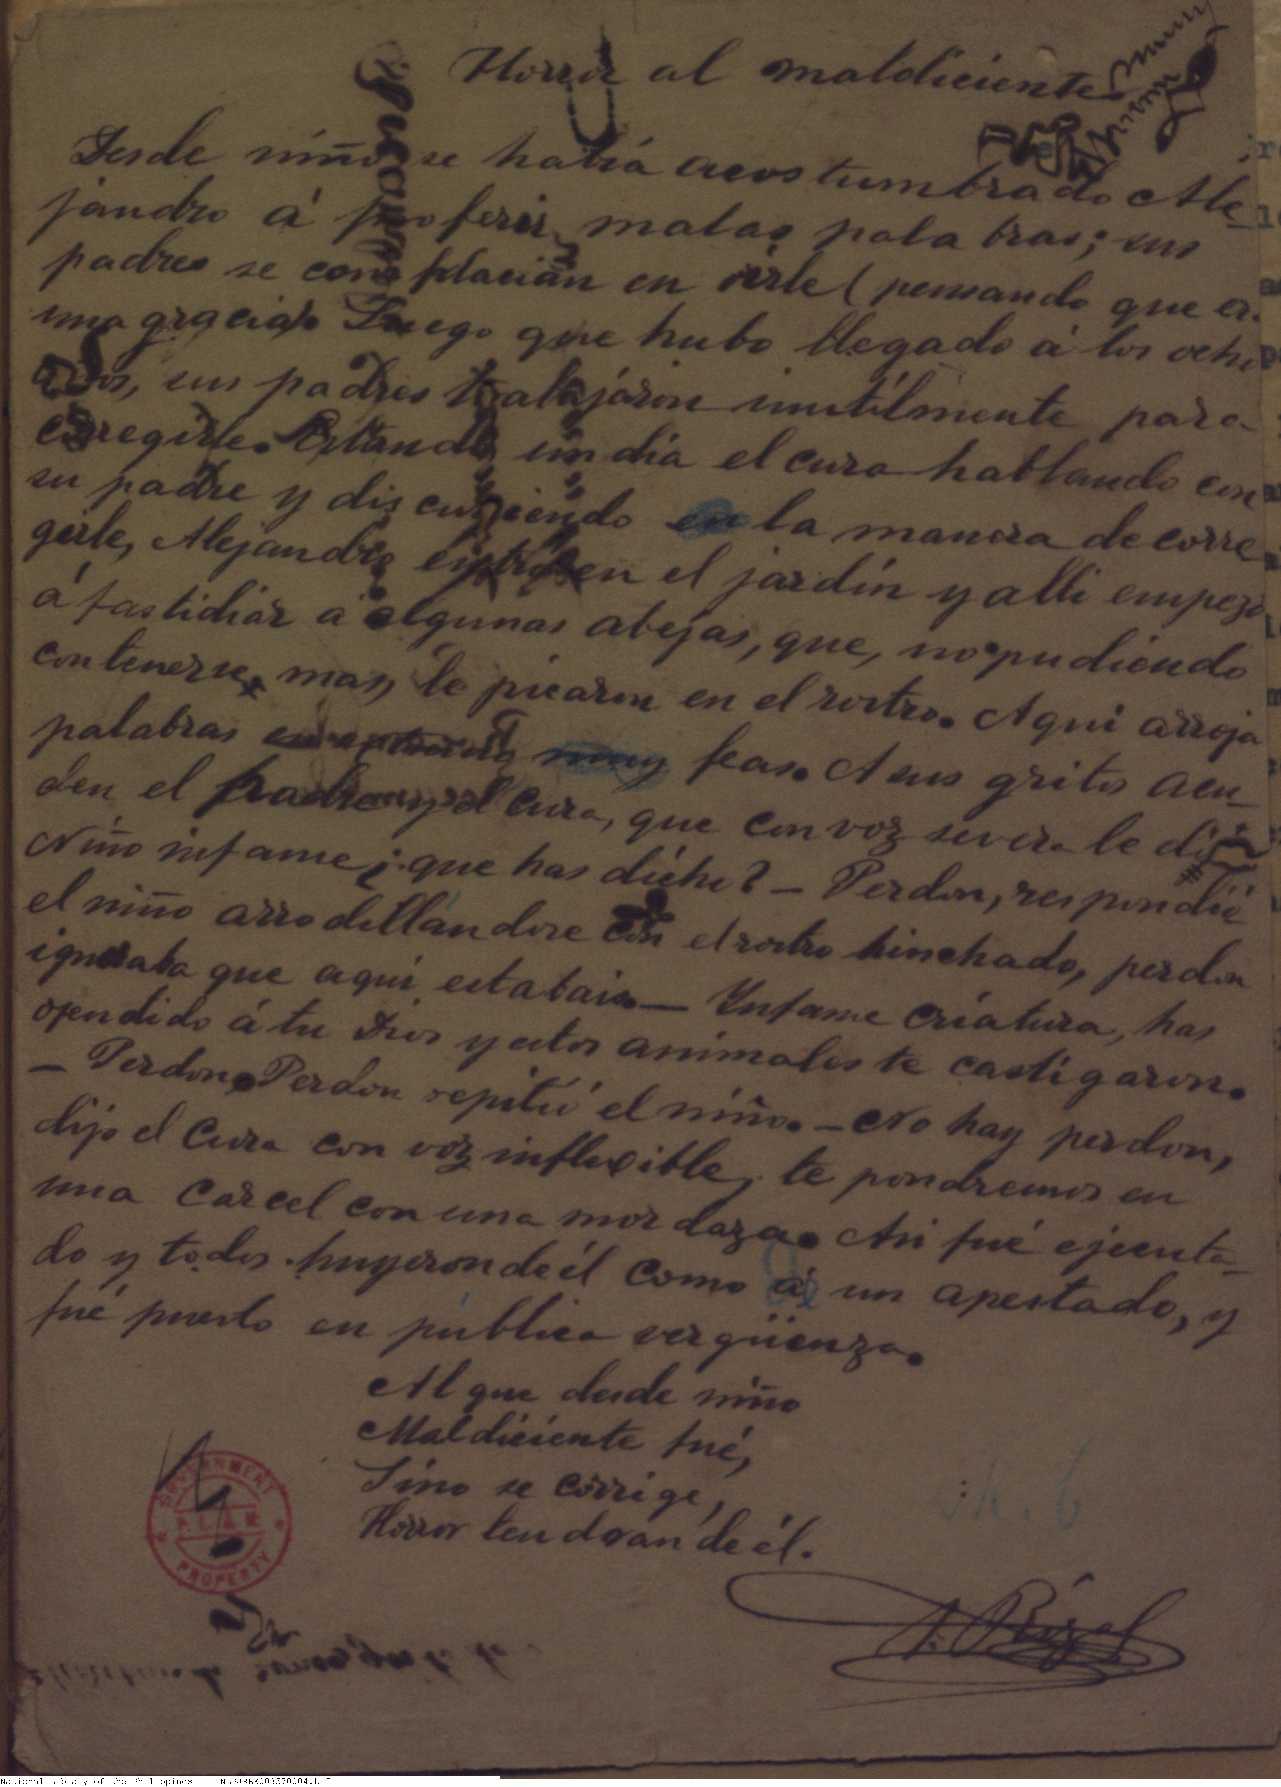 Horror al maldiciente
Desde niño se había acostumbrado Ale-
jandro á proferir malas palabras; sus
padres se complacian en oirle (pensando que er
una gracia). Luego que hubo llegado á los ocho
años, sus padres trabajáron inutilmente para
corregirle. Estando un dia el cura hablando con
su padre y discurriendo en la manera de corre
girle, Alejandro entró en el jardín y alli empezó
á fastidiar á algunas abejas, que, no pudiendo
contenerse, mas, le picaron en el rostro. Aqui arroja
palabras muy feas. A sus gritos acu-
den el padre y el Cura, que con voz severa le dijo
Niño infame ¿que has dicho? - Perdon, respondió
el niño arrodillándose con el rostro hinchado, perdon
ignoraba que aqui estabais. - Infame criatura, has
ofendido á tu Dios y estos animales te castigaron.
- Perdon, Perdon repitió el niño. - No hay perdon,
dijo el Cura con voz inflexible, te pondremos en
una Carcel con una mordaza. Asi fué ejecuta-
do y todos huyeron de él como á un apestado, y
fué puesto en pública vergüenza.
Al que desde niño
Maldiciente fué,
Sino se corrige,
Horror tendran de él.
J. Rizal
GOVERNMENT
PROPERTY
National Library of the Philippines